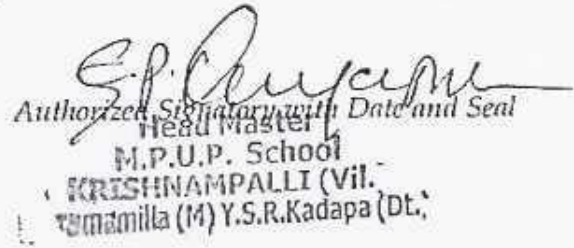 Authorized Signatory with Date and Seal
Head Master
M.P.U.P. School
KRISHNAMPALLI (Vil.
(M) Y.S.R.Kadapa (Dt.